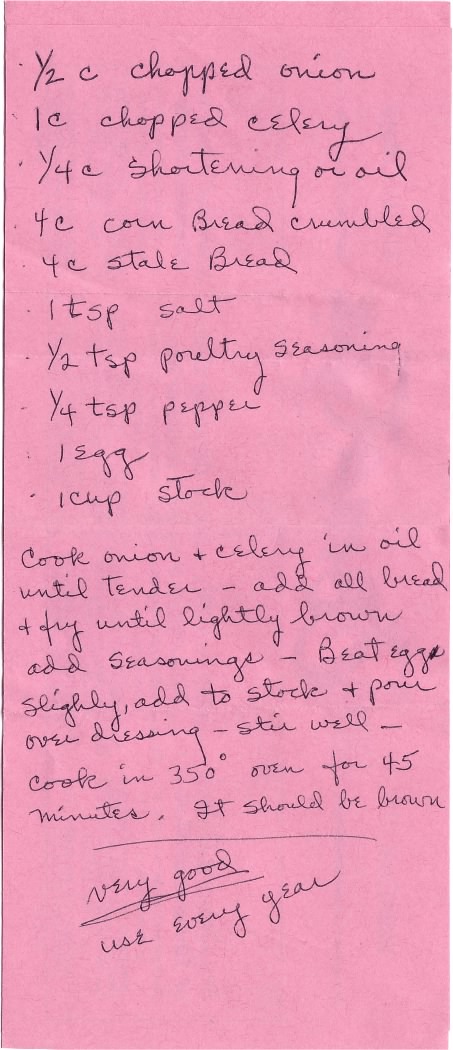 1/2 c chopped onion
1c chopped celery
1/4 c Shortening or oil
4c corn Bread crumbled
4c Stale Bread
1 tsp salt
1/2 tsp poultry Seasoning
1/4 tsp pepper
1 egg
1 cup Stock
Cook onion + celery in oil
until Tender - add all bread
+ fry until lightly brown
add Seasonings - Beat egg
Slighly, add to Stock + pour
over dressing - Stir well -
Cook in 350° oven for 45
minutes. It Should be brown
very good
use every year